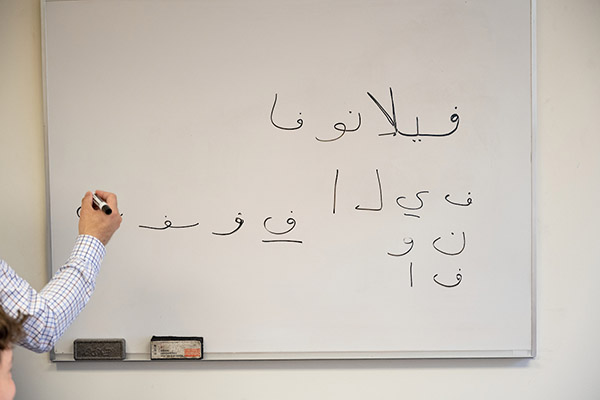 فيلانوفا
ف ي ل ا
ن و
ف ا
ف فـ ـفـ